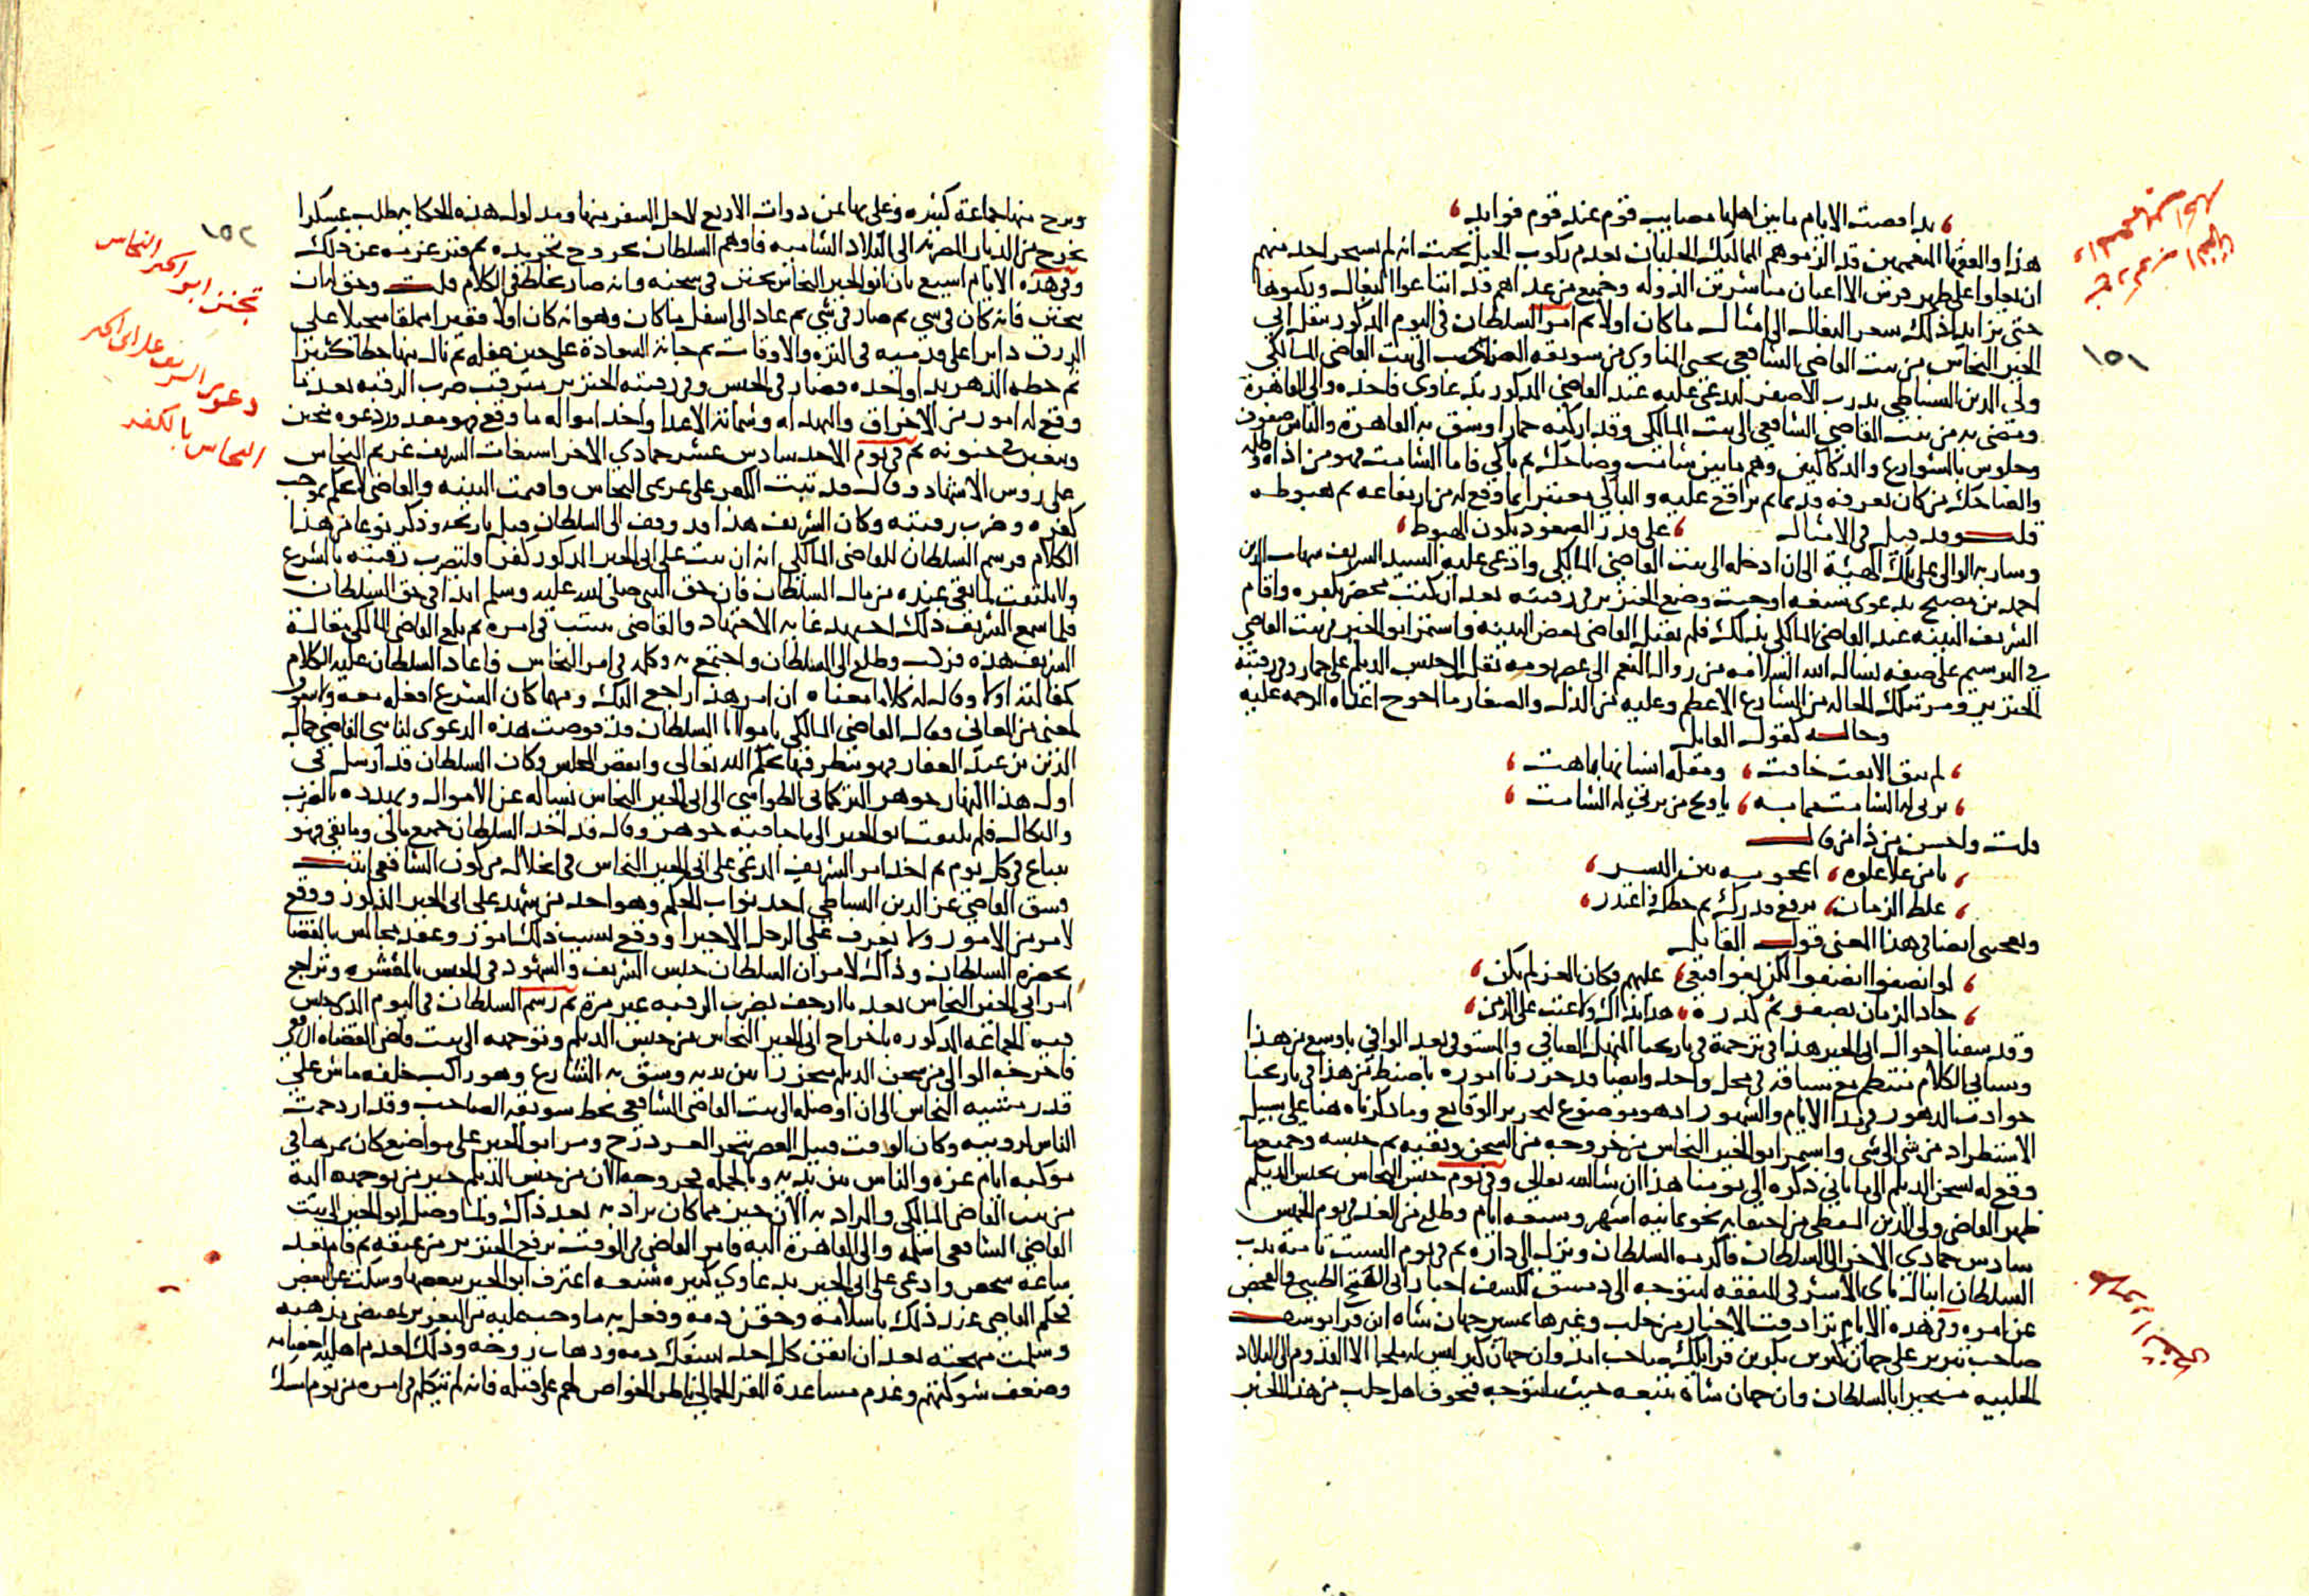 بذا قضت الايام ما بين اهلها مصايب قوم عند قوم فوايد
هذا والفقها المتعممين قد الزموهم المماليك الجلبان بعدم ركوب الخيل بحيث انه لم يتجر احد منهم
ان يعلوا على ظهر فرس الا اعيان مباشرين الدوله وجميع من عداهم قد ابتاعوا البغال وركبوها
حتى تزايد لذلك سعر البغال الى امثال ما كان اولا ثم امر السلطان في اليوم المذكور بنقل ابي
الخير النحاس من بيت القاضي الشافعي يحيى المناوي من سويقه الصاحب الى بيت القاضي المالكي
ولي الدين السنباطي بدرب الاصفر ليدعي عليه عند القاضي المذكور بدعاوي فاخذه والي القاهرة
ومضى به من بيت القاضي الشافعي الى بيت المالكي وقد اركبه حمارا وشق به القاهرة والناس صفوف
وجلوس بالشوارع والدكاكين وهم ما بين شامت وضاحك ثم باكي فاما الشامت فهو من اذاه وظلمه
والضاحك من كان يعرفه قديما ثم ترافع عليه والباكي معتبرا بما وقع له من ارتفاعه ثم هبوطه
قلت وقد قيل في الامثال على قدر الصعود يكون الهبوط
وسار به الوالي على تلك الهيئة الى ان ادخله الى بيت القاضي المالكي وادعى عليه السيد الشريف شهاب الدين
احمد بن مصبح بدعوى شنعه اوجبت وضع الجنزير في رقبته بعد ان كتب محضر بكفره واقام
الشريف البينه عند القاضي المالكي بذلك فلم يقبل القاضي بعض البينه واستمر ابو الخير في بيت القاضي
في الترسيم على صفه نسال الله السلامه من زوال النعم الى عصر يومه نقل الى حبس الديلم على حمار وفي رقبته
الجنزير ومر بتلك الحاله من الشارع الاعظم وعليه من الذل والصغار ما احوج اعداه الرحمه عليه
وحاله كقول القايل
لم يبق الا نفس خافت ومقله انسانها باهت
يرثى له الشامت مما به يا ويح من يرثي له الشامت
قلت واحسن من ذا من قال
يا من علا علوه اعجوبه بين البشر
غلط الزمان برفع قدرك ثم حطك فاعتذر
ويعجبني ايضا في هذا المعنى قول القايل
لو انصفوا انصفوا لكن بغوا فبغي عليهم فكان العز لم يكن
جاد الزمان بصفو ثم كدره هذا بذاك ولا عتب على الزمن
وقد سقنا احوال ابي الخير هذا في ترجمة في تاريخنا المنهل الصافي والمستوفى بعد الوافي باوسع من هذا
وسياق الكلام منتظم مع سياقه في محل واحد وايضا قد حررنا اموره باضبط من هذا في تاريخنا
حوادث الدهور في مدا الايام والشهور اذ هو موضوع لتحرير الوقايع وما ذكرناه هنا على سبيل
الاستطراد من شي الى شي واستمر ابو الخير النحاس من خروجه من السجن ونفيه ثم حبسه وجميع ما
وقع له بسجن الديلم الى ما ياتي ذكره الى يومنا هذا ان شا الله تعالى وفي يوم حبس النحاس بحبس الديلم
ظهر القاضي ولي الدين السفطي من اختفايه نحو ثمانيه اشهر وسبعه ايام وطلع من الغد في يوم الخميس
سادس جمادي الاخر الى السلطان فاكرمه السلطان ونزل الى داره ثم في يوم السبت ثامنه ندب
السلطان اينال باي الاشرفي المتفقه ليتوجه الى دمشق لكشف اخبار ابي الفتح الطيبي والفحص
عن امره وفي هذه الايام ترادفت الاخبار من حلب وغيرها بمسير جهان شاه ابن قرا يوسف
صاحب تبريز على جهان كير بن قرايلك صاحب امد وان جهان كير ليس له ملجا الا القدوم الى البلاد
الحلبيه مستجيرا بالسلطان وان جهان شاه يتبعه حيث يتوجه فتخوف اهل حلب من هذا الخبر
١٥١
ونزح منها جماعة كثيره وغلى بها ثمن ذوات الاربع لاجل السفر منها ومدلول هذه الحكايه طلب عسكر
يخرج من الديار المصريه الى البلاد الشاميه فاوهم السلطان بخروج تجريده ثم فتر عزمه عن ذلك
وفي هذه الايام اشيع بان ابو الخير النحاس تجنن في سجنه وانه صار يخلط في الكلام قلت وحق له ان
يتجنن فانه كان في شي ثم صار في شي ثم عاد الى اسفل ما كان وهو انه كان اولا فقيرا مملقا متحيلا على
الرزق دايرا على قدميه في النزه والاوقات ثم جاته السعادة على حين غفله ثم نال منها حظا كثيرا
ثم حطه الدهر يدا واحده فصار في الحبس وفي رقبته الجنزير يترقب ضرب الرقبه بعد ما
وقع له امور من الاخراق والبهدله وشماتة الاعدا واخذ امواله ما وقع فهو معذور دعوه يتجنن
ويتفنن في جنونه ثم في يوم الاحد سادس عشر جمادي الاخر استغاث الشريف غريم النحاس
على روس الاشهاد وقال قد ثبت الكفر على غريمي النحاس واقيمت البينه والقاضي لا يحكم بموجب
كفره وضرب رقبته وكان الشريف هذا قد وقف الى السلطان قبل تاريخه وذكر نوعا من هذا
الكلام فرسم السلطان للقاضي المالكي انه ان ثبت على ابي الخير المذكور كفرا فلتضرب رقبته بالشرع
ولا يلتفت لما بقي عنده من مال السلطان فان حق النبي صلى الله عليه وسلم ابدا في حق السلطان
فلما سمع الشريف ذلك اجتهد غايه الاجتهاد والقاضي يتثبت في امره ثم بلغ القاضي المالكي مقالة
الشريف هذه فركب وطلع الى السلطان واجتمع به وكلمه في امر النحاس فاعاد السلطان عليه الكلام
كمقالته اولا وقال له كلاما معناه ان امر هذا راجع اليك ومهما كان الشرع افعله معه ولا
لمعنى من المعاني فقال القاضي المالكي يا مولانا السلطان قد فوضت هذه الدعوى لنايبي القاضي كمال
الدين بن عبد الغفار فهو ينظر فيها بحكم الله تعالى وانفض المجلس وكان السلطان قد ارسل في
اول هذا النهار جوهر التركماني الطواشي الى ابي الخير النحاس يساله عن الاموال ويهدده بالضرب
والنكال فلم يلتفت ابو الخير الى ما جا فيه جوهر وقال قد اخذ السلطان جميع مالي وما بقي فهو
يباع في كل يوم ثم اخذ امر الشريف المدعي على ابي الخير النحاس في انحلال من كون الشافعي اثبت
فسق القاضي عز الدين البساطي احد نواب الحكم وهو احد من شهد على ابي الخير المذكور ووقع
لامر من الامور ولا يعرف على الرجل الا خيرا ووقع بسبب ذلك امور وعقد مجالس بالقضاة
بحضرة السلطان وذاك لامر وان السلطان حبس الشريف والشهود في الحبس بالمقشره وتراجع
امر ابي الخير النحاس بعد ما ارجف بضرب الرقبه غير مرة ثم رسم السلطان في اليوم الذي حبس
فيه الجماعه المذكوره باخراج ابي الخير النحاس من حبس الديلم وتوجهه الى بيت قاضي القضاه
فاخرجه الوالي من سجن الديلم مجنزرا بين يديه وشق به الشارع وهو راكب خلفه ماش على
قدر مشيه النحاس الى ان اوصله الى بيت القاضي الشافعي بخط سويقه الصاحب وقد ازدحمت
الناس لرويته وكان الوقت قبيل العصر بنحو العشر درج ومر ابو الخير على مواضع كان يمر بها في
موكبه ايام عزه والناس بين يديه وبالجمله فخروجه الان من حبس الديلم خير من توجهه اليه
من بيت القاضي المالكي والمراد به الان خير مما كان يراد به بعد ذاك ولما وصل ابو الخير الى بيت
القاضي الشافعي اسلمه والى القاهرة اليه فامر القاضي في الوقت برفع الجنزير من عنقه ثم قام بعد
ساعه شخص وادعى على ابي الخير بدعاوي كثيره شنعه اعترف ابو الخير ببعضها وسكت عن البعض
فحكم القاضي عند ذلك باسلامه وحقن دمه وفعل به ما وجب عليه من التعزير بمقتضى مذهبه
وسلمت مهجته بعد ان ايقن كل احد بسفك دمه وذهاب روحه وذلك لعدم اهليه اخصامه
وضعف شوكتهم وعدم مساعدة المقر الجمالي ناظر الخواص لهم على قتله فانه لم يتكلم في امره من يوم
١٥٢
تجنن ابو الخير النحاس
دعوى الشريف على ابي الخير
النحاس بالكفر